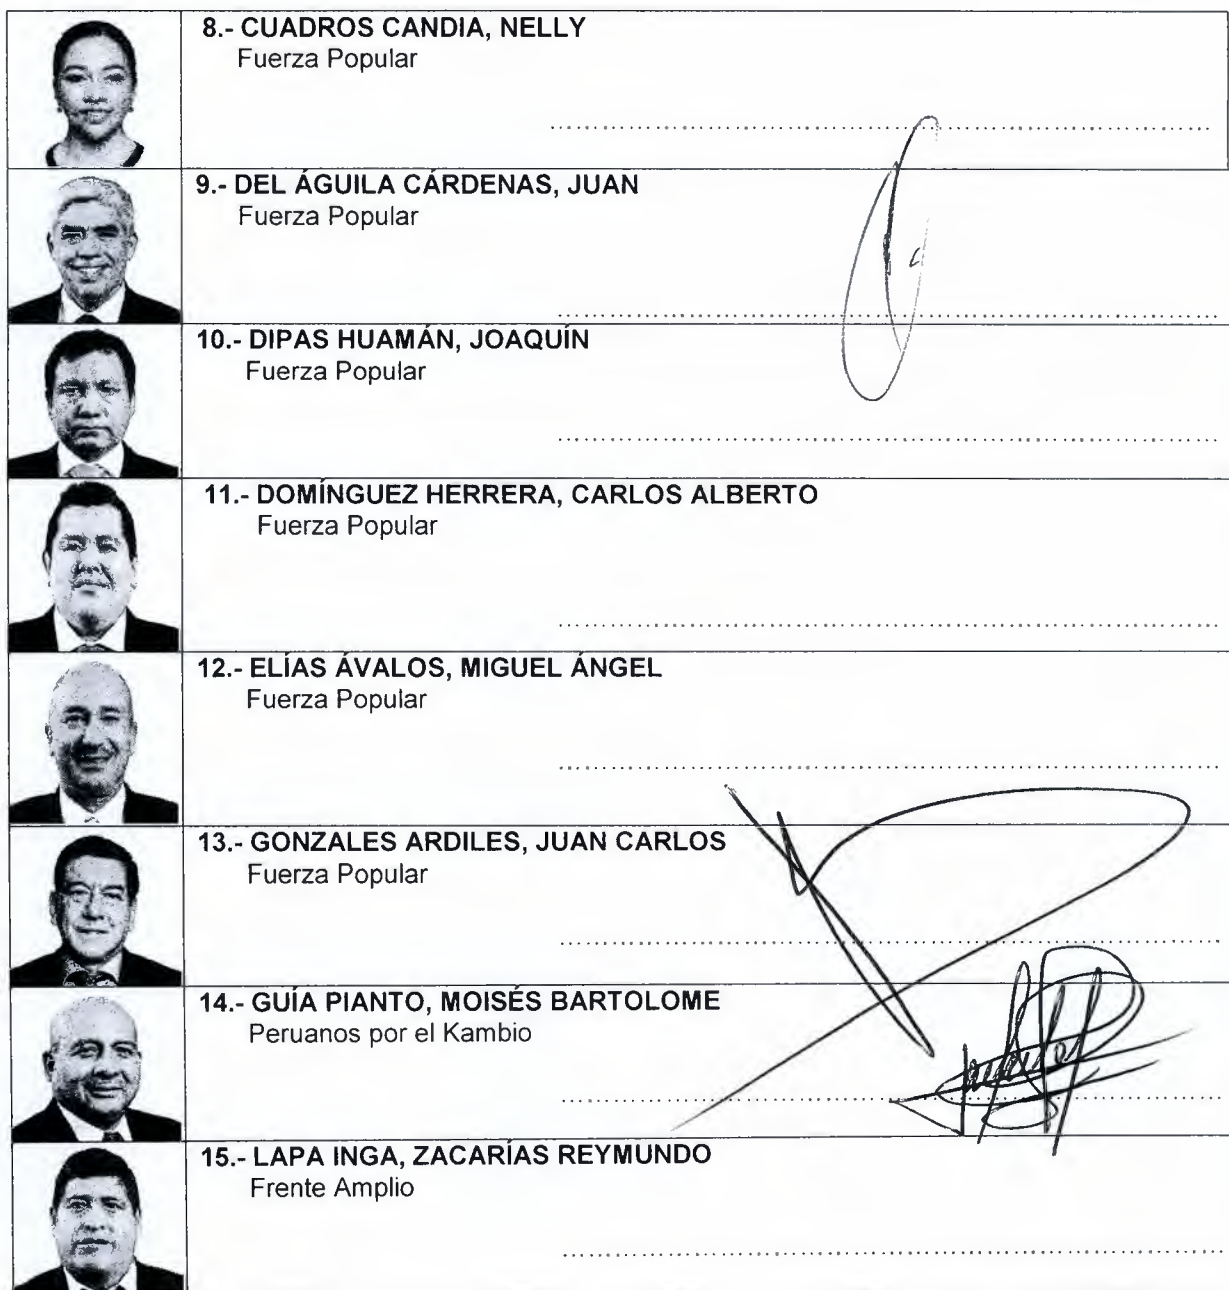 8.- CUADROS CANDIA, NELLY
Fuerza Popular
9.- DEL ÁGUILA CÁRDENAS, JUAN
Fuerza Popular
10.- DIPAS HUAMÁN, JOAQUÍN
Fuerza Popular
11.- DOMÍNGUEZ HERRERA, CARLOS ALBERTO
Fuerza Popular
12.- ELÍAS ÁVALOS, MIGUEL ÁNGEL
Fuerza Popular
13.- GONZALES ARDILES, JUAN CARLOS
Fuerza Popular
14.- GUÍA PIANTO, MOISÉS BARTOLOME
Peruanos por el Kambio
15.- LAPA INGA, ZACARÍAS REYMUNDO
Frente Amplio